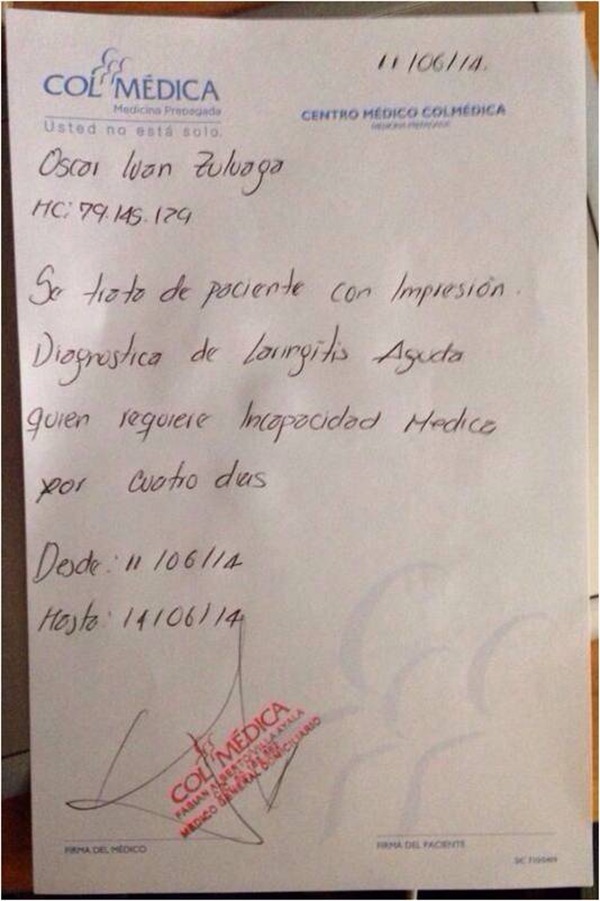 COLMÉDICA
Medicina Prepagada
Usted no está solo.
11/06/14.
CENTRO MÉDICO COLMÉDICA
MEDICINA PREPAGADA
Oscar Ivan Zuluaga
HC: 79.145.129
Se trata de paciente con Impresión.
Diagnostica de Laringitis Aguda
quien requiere Incapacidad Medica
por cuatro dias
Desde: 11/06/14
Hasta: 14/06/14
COLMÉDICA
FABIAN ALBERTO VILLA AYALA
MEDICO GENERAL DOMICILIARIO
FIRMA DEL MÉDICO
FIRMA DEL PACIENTE